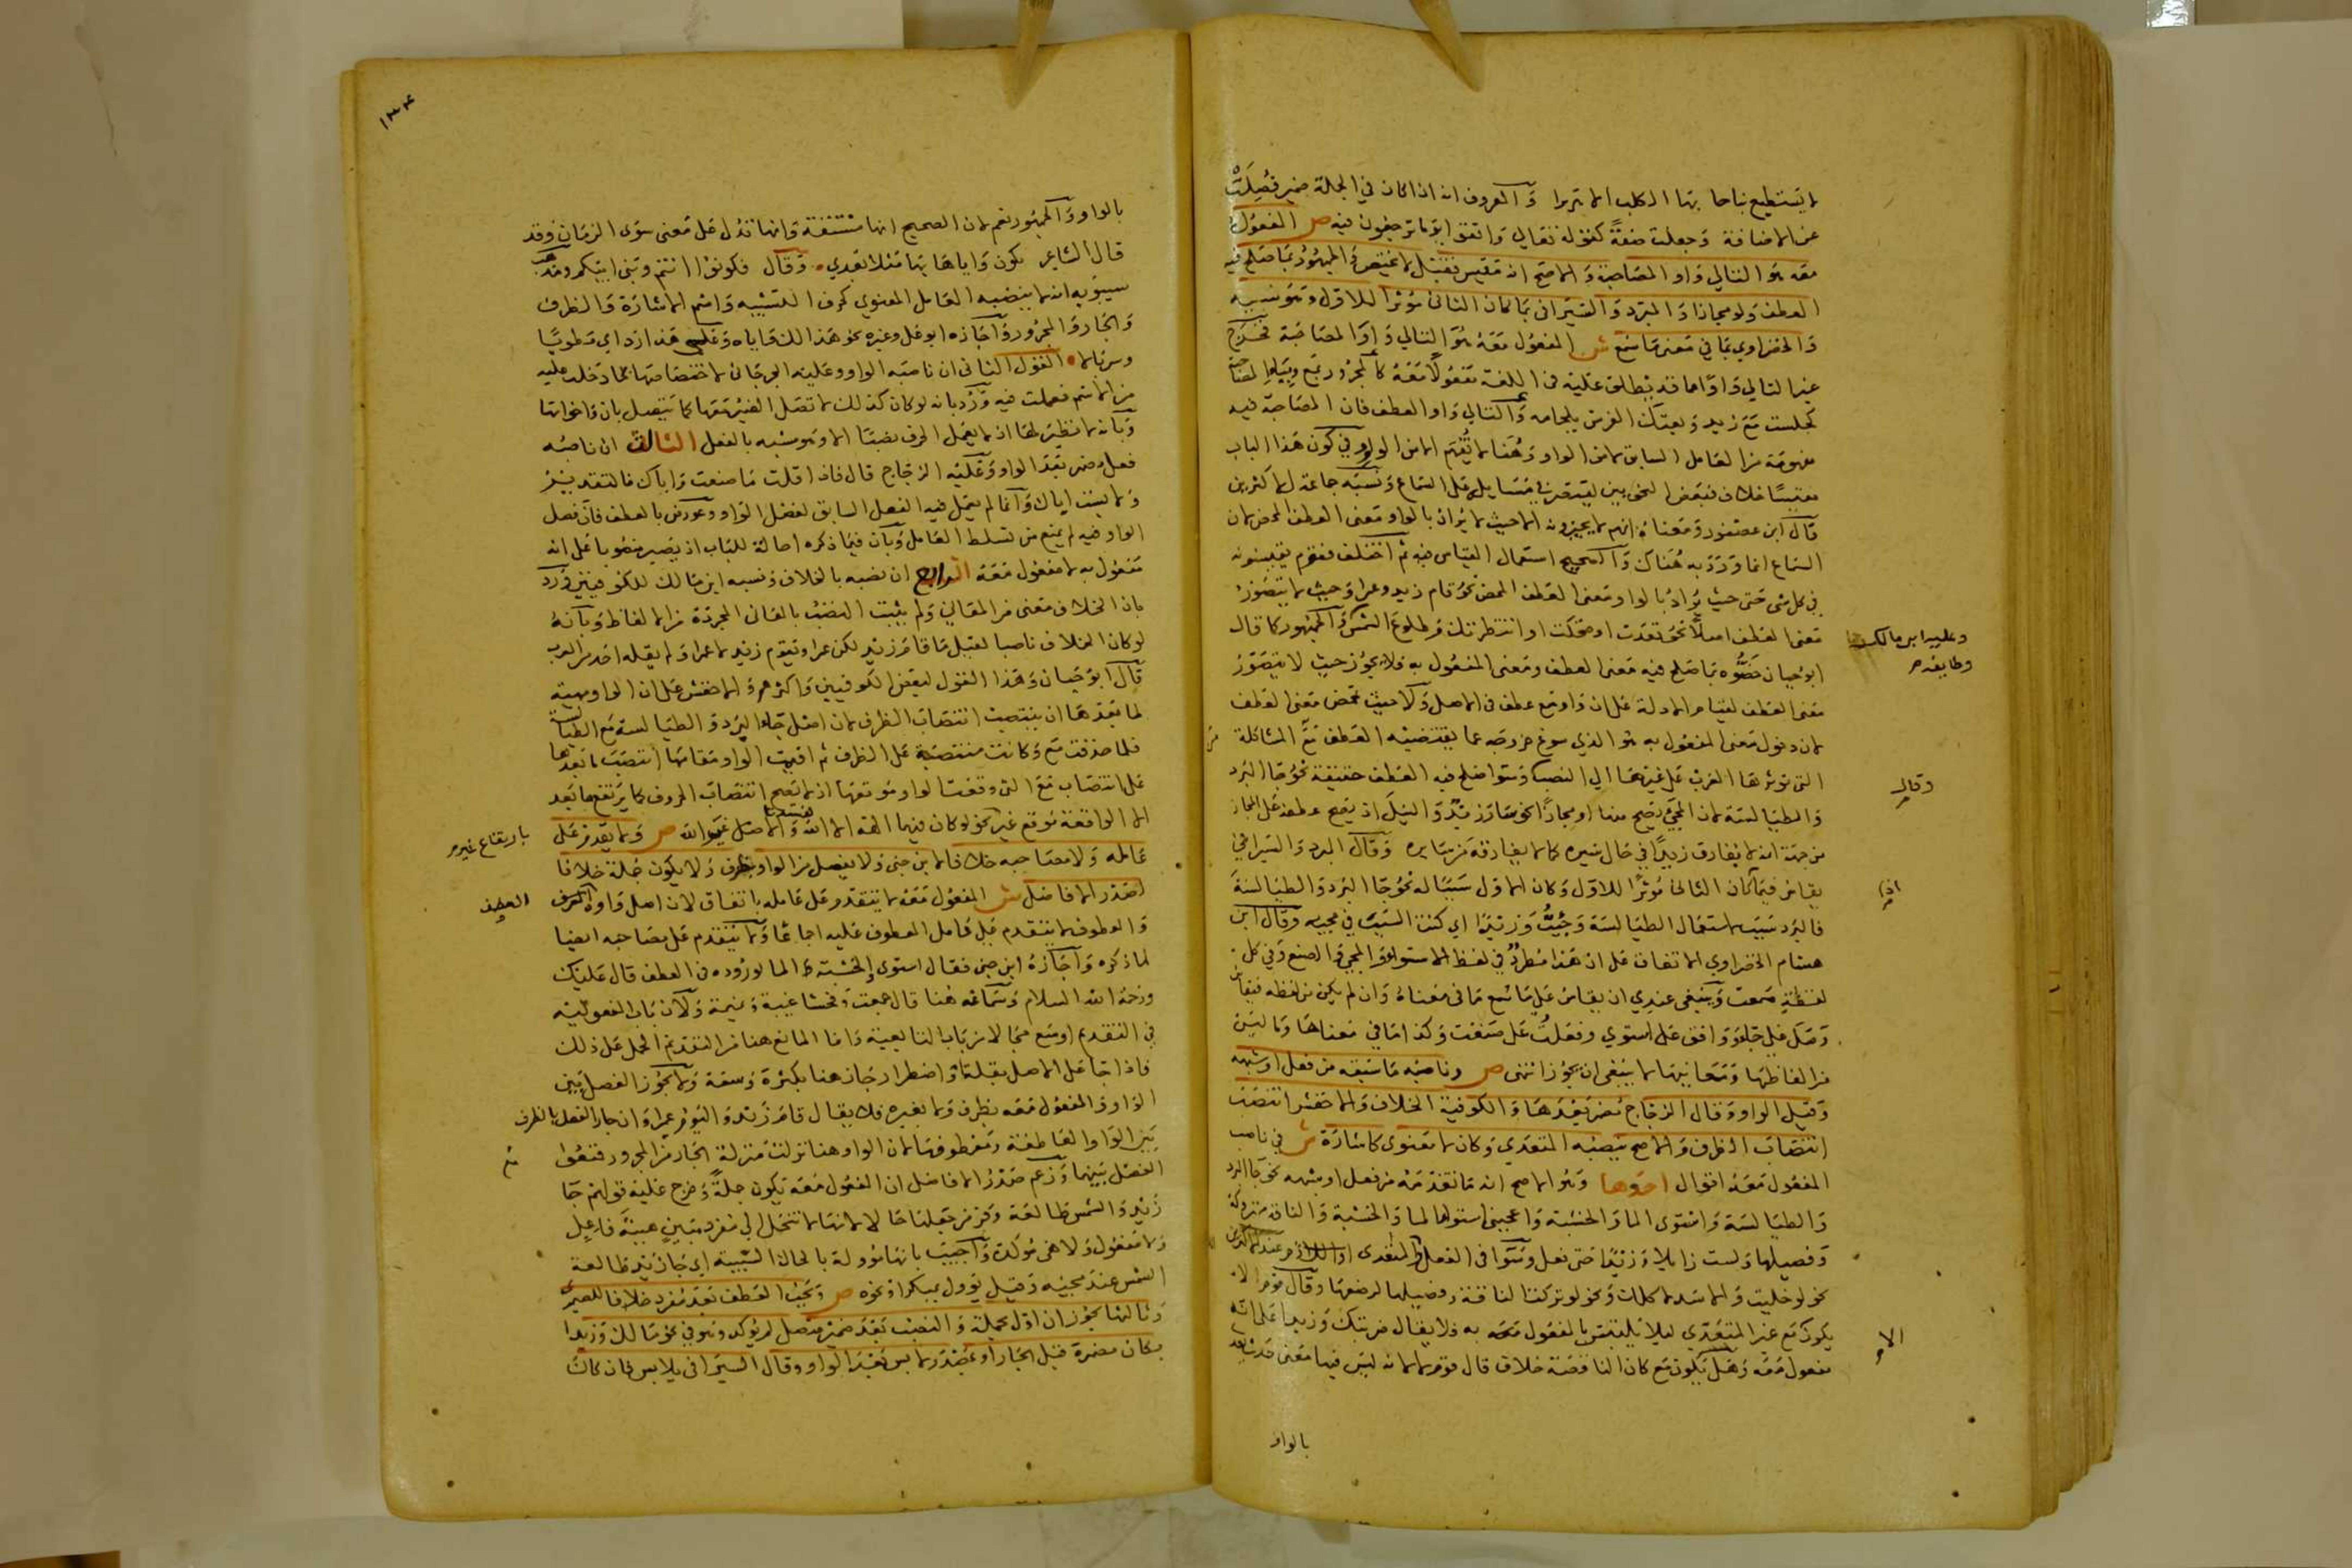 لا يستطيع نباحا بها الكلب الا هريرا والمعروف انه اذا كان في الجملة ضمير فصلت
عن الاضافة وجعلت صفة كقوله تعالى واتقوا يوما ترجعون فيه ص المفعول
معه هو التالي واو المصاحبة والاصح انه مقيس فقيل لا يختص والجمهور بما صلح فيه
العطف ولو مجازا والمبرد والسيرافي بما كان الثاني مؤثرا للاول وهو سببه
والخضراوي بما في معنى ما سمع ش المفعول معه هو التالي واو المصاحبة فخرج
غير التالي واوا مما قد يطلق عليه في اللغة مفعولا معه كالمجرور بمع وبباء المصاحبة
كجلست مع زيد وبعتك الفرس بلجامه والتالي واو العطف فان المصاحبة فيه
مفهومة من العامل السابق لا من الواو وهنا لا تفهم الا من الواو وفي كون هذا الباب
مقيسا خلاف فبعض النحويين يقتصر في مسايله على السماع ونسبه جماعة للاكثرين
قال ابن عصفور ومعناه انهم لا يجيزونه الا حيث لا يراد بالواو معنى العطف المحض لان
السماع انما ورد به هناك والصحيح استعمال القياس فيه ثم اختلف فقوم يقيسونه
في كل شي حتى حيث يراد بالواو معنى العطف المحض نحو قام زيد وعمرا وحيث لا يتصور
معنى العطف اصلا نحو قعدت او ضحكت او انتظرتك وطلوع الشمس والجمهور كما قال
وعليه ابن مالك
ابو حيان خصوه بما صلح فيه معنى العطف ومعنى المفعول به فلا يجوز حيث لا يتصور
معنى العطف لقيام الادلة على ان واو مع عطف في الاصل ولا حيث تمحض معنى العطف
لان دخول معنى المفعول به هو الذي سوغ خروجه عما يقتضيه العطف من المشاكلة
التي تؤثرها العرب على غيرها الى النصب وسوا صلح فيه العطف حقيقة نحو جا البرد
وقال
والطيالسة لان المجي يصح منها او مجازا نحو سار زيد والنيل اذ يصح عطفه على المجاز
من جهة انه لا يفارق زيدا في حال سيره كما لا يفارقه من سايره وقال المبرد والسيرافي
يقاس فيما كان الثاني مؤثرا للاول وكان الاول سببا له نحو جا البرد والطيالسة
فالبرد سبب لاستعمال الطيالسة وجئت وزيدا اي كنت السبب في مجيه وقال ابن
هشام الخضراوي الاتفاق على ان هذا مطرد في لفظ الاستواء والمجي والصنع وفي كل
لفظة سمعت وينبغي عندي ان يقاس على ما سمع ما في معناه وان لم يكن من لفظه فيقاس
وصل على جاء ووافق على استوى وفعلت على صنعت وكذا ما في معناها وما ليس
من الفاظها ومعانيها لا ينبغي ان يجوز انتهى ص وناصبه ما سبقه من فعل او شبهه
وقيل الواو وقال الزجاج مضمر بعدها والكوفية الخلاف والاخفش انتصب
انتصاب الظرف والاصح نصبه المتعدي وكان لا معنوى كاشارة ش في ناصب
المفعول معه اقوال احدها وهو الاصح انه ما تقدمه من فعل او شبهه نحو جا البرد
والطيالسة واستوى الما والخشبة واعجبني استوا الما والخشبة والناقة متروكة
وفصيلها ولست زايلا وزيدا حتى تفعل وسوا في الفعل المتعدي
نحو لو خليت والاسد لاكلك ونحو لو تركت الناقة وفصيلها لرضعها وقال قوم لا
يكون مع غير المتعدي ليلا يلتبس بالمفعول به فلا يقال ضربتك وزيدا على انه
الا
مفعول معه وهل يكون مع كان الناقصة خلاف قال قوم لا لانه ليس فيها معنى حدث
بالواو
١٣٤
بالواو والجمهور نعم لان الصحيح انها مشتقة وانها تدل على معنى سوى الزمان وقد
قال الشاعر يكون واياها بها مثلا بعدي وقال فكونوا انتم وبني ابيكم ومذهب
سيبويه انه لا ينصبه العامل المعنوي كحرف التشبيه واسم الاشارة والظرف
والجار والمجرور واجازه ابو علي وغيره نحو هذا لك واياه وعليه هذا رداي مطويا
وسربالا القول الثاني ان ناصبه الواو وعليه الجرجاني لاختصاصها بما دخلت عليه
من الاسم فعملت فيه ورد بانه لو كان كذلك لاتصل الضمير معها كما يتصل بان واخواتها
وبانه لا نظير لها اذ لا يعمل الحرف نصبا الا وهو مشبه بالفعل الثالث ان ناصبه
فعل مضمر بعد الواو وعليه الزجاج قال فاذا قلت ما صنعت واباك فالتقدير
ولابست اباك وانما لم يعمل فيه الفعل السابق لفصل الواو وعورض بالعطف فان فصل
الواو فيه لم يمنع من تسلط العامل وبان فيما ذكره احالة للباب اذ يصير منصوبا على انه
مفعول به لا مفعول معه الرابع ان نصبه بالخلاف ونسبه ابن مالك للكوفيين ورد
بان الخلاف معنى من المعاني ولم يثبت النصب بالمعاني المجردة من الالفاظ وبانه
لو كان الخلاف ناصبا لقيل ما قام زيد لكن عمرا ويقوم زيد لا عمرا ولم يقله احد من العرب
قال ابو حيان وهذا القول لبعض الكوفيين واكثرهم والاخفش على ان الواو مهيئة
لما بعدها ان ينتصب انتصاب الظرف لان اصل جاء البرد والطيالسة مع الطيالسة
فلما حذفت مع وكانت منتصبة على الظرف ثم اقيمت الواو مقامها انتصب ما بعدها
على انتصاب مع التي وقعت الواو موقعها اذ لا يصح انتصاب الحروف كما يرتفع ما بعد
الا الواقعة موقع غير نحو لو كان فيهما الهة الا الله والاصل غير الله ص ولا يقدم على
بارتفاع غير
عامله ولا مصاحبه خلافا لابن جني ولا يفصل من الواو بظرف ولا يكون جملة خلافا
لصدر الافاضل ش المفعول معه لا يتقدم على عامله باتفاق لان اصل واوه
العطف
والمعطوف لا يتقدم على عامل المعطوف عليه اجماعا ولا يتقدم على مصاحبه ايضا
لما ذكره واجازه ابن جني فقال استوى والخشبة الما لوروده في العطف قال عليك
ورحمة الله السلام وسماعه هنا قال جمعت وفحشا غيبة ونميمة ولان باب المفعولية
في التقديم اوسع مجالا من باب التابعية واما المانع هنا من التقديم الحمل على ذلك
فاذا جا على الاصل بقلة او اضطرار جاز هنا بكثرة وسعة ولا يجوز الفصل بين
الواو والمفعول معه بظرف ولا بغيره فلا يقال قام زيد واليوم عمرا وان جاز الفصل بالظرف
بين الواو العاطفة ومعطوفها لان الواو هنا نزلت منزلة الجار من المجرور فمنعوا
الفصل بينهما وزعم صدر الافاضل ان المفعول معه يكون جملة وخرج عليه قولهم جا
زيد والشمس طالعة وفر من جعلها حالا لانها لا تنحل الى مفرد مبين هيئة فاعل
ولا مفعول ولا هي مؤكدة واجيب بانها مؤولة بالحال السببية اي جا زيد طالعة
الشمس عند مجيئه وقيل يؤول بمبكرا ونحوه ص ويجب العطف بعد مفرد خلافا للصيمري
وثالثها يجوز ان اول بجملة والنصب بعد ضمير متصل لم يؤكد وهو في نحو ما لك وزيدا
بكان مضمرة قبل الجار او بمصدر لابس بعد الواو وقال السيرافي يلابس فان كان